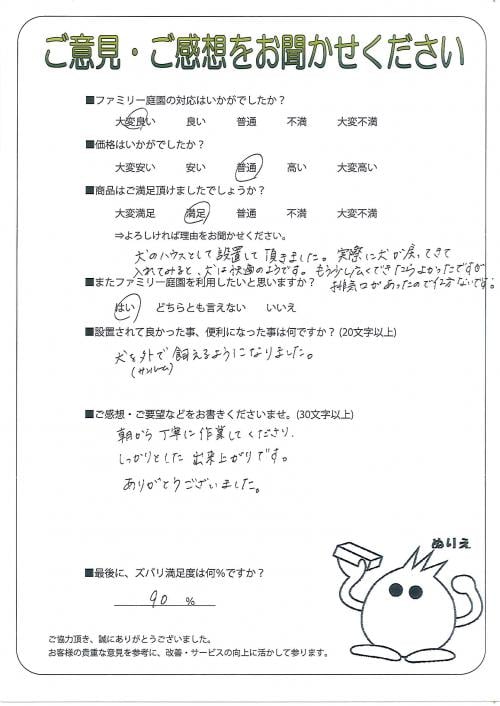 ご意見・ご感想をお聞かせください
■ファミリー庭園の対応はいかがでしたか？
大変良い 良い 普通 不満 大変不満
■価格はいかがでしたか？
大変安い 安い 普通 高い 大変高い
■商品はご満足頂けましたでしょうか？
大変満足 満足 普通 不満 大変不満
⇒よろしければ理由をお聞かせください。
犬のハウスとして設置して頂きました。実際に犬が戻ってきて
入れてみると、犬は快適のようです。もう少し広くできたらよかったですが
排気口があったので仕方ないです。
■またファミリー庭園を利用したいと思いますか？
はい どちらとも言えない いいえ
■設置されて良かった事、便利になった事は何ですか？(20文字以上)
犬を外で飼えるようになりました。
(サンルーム)
■ご感想・ご要望などをお書きくださいませ。(30文字以上)
朝から丁寧に作業してくださり、
しっかりとした出来上がりです。
ありがとうございました。
ぬりえ
■最後に、ズバリ満足度は何％ですか？
90 ％
ご協力頂き、誠にありがとうございました。
お客様の貴重な意見を参考に、改善・サービスの向上に活かして参ります。